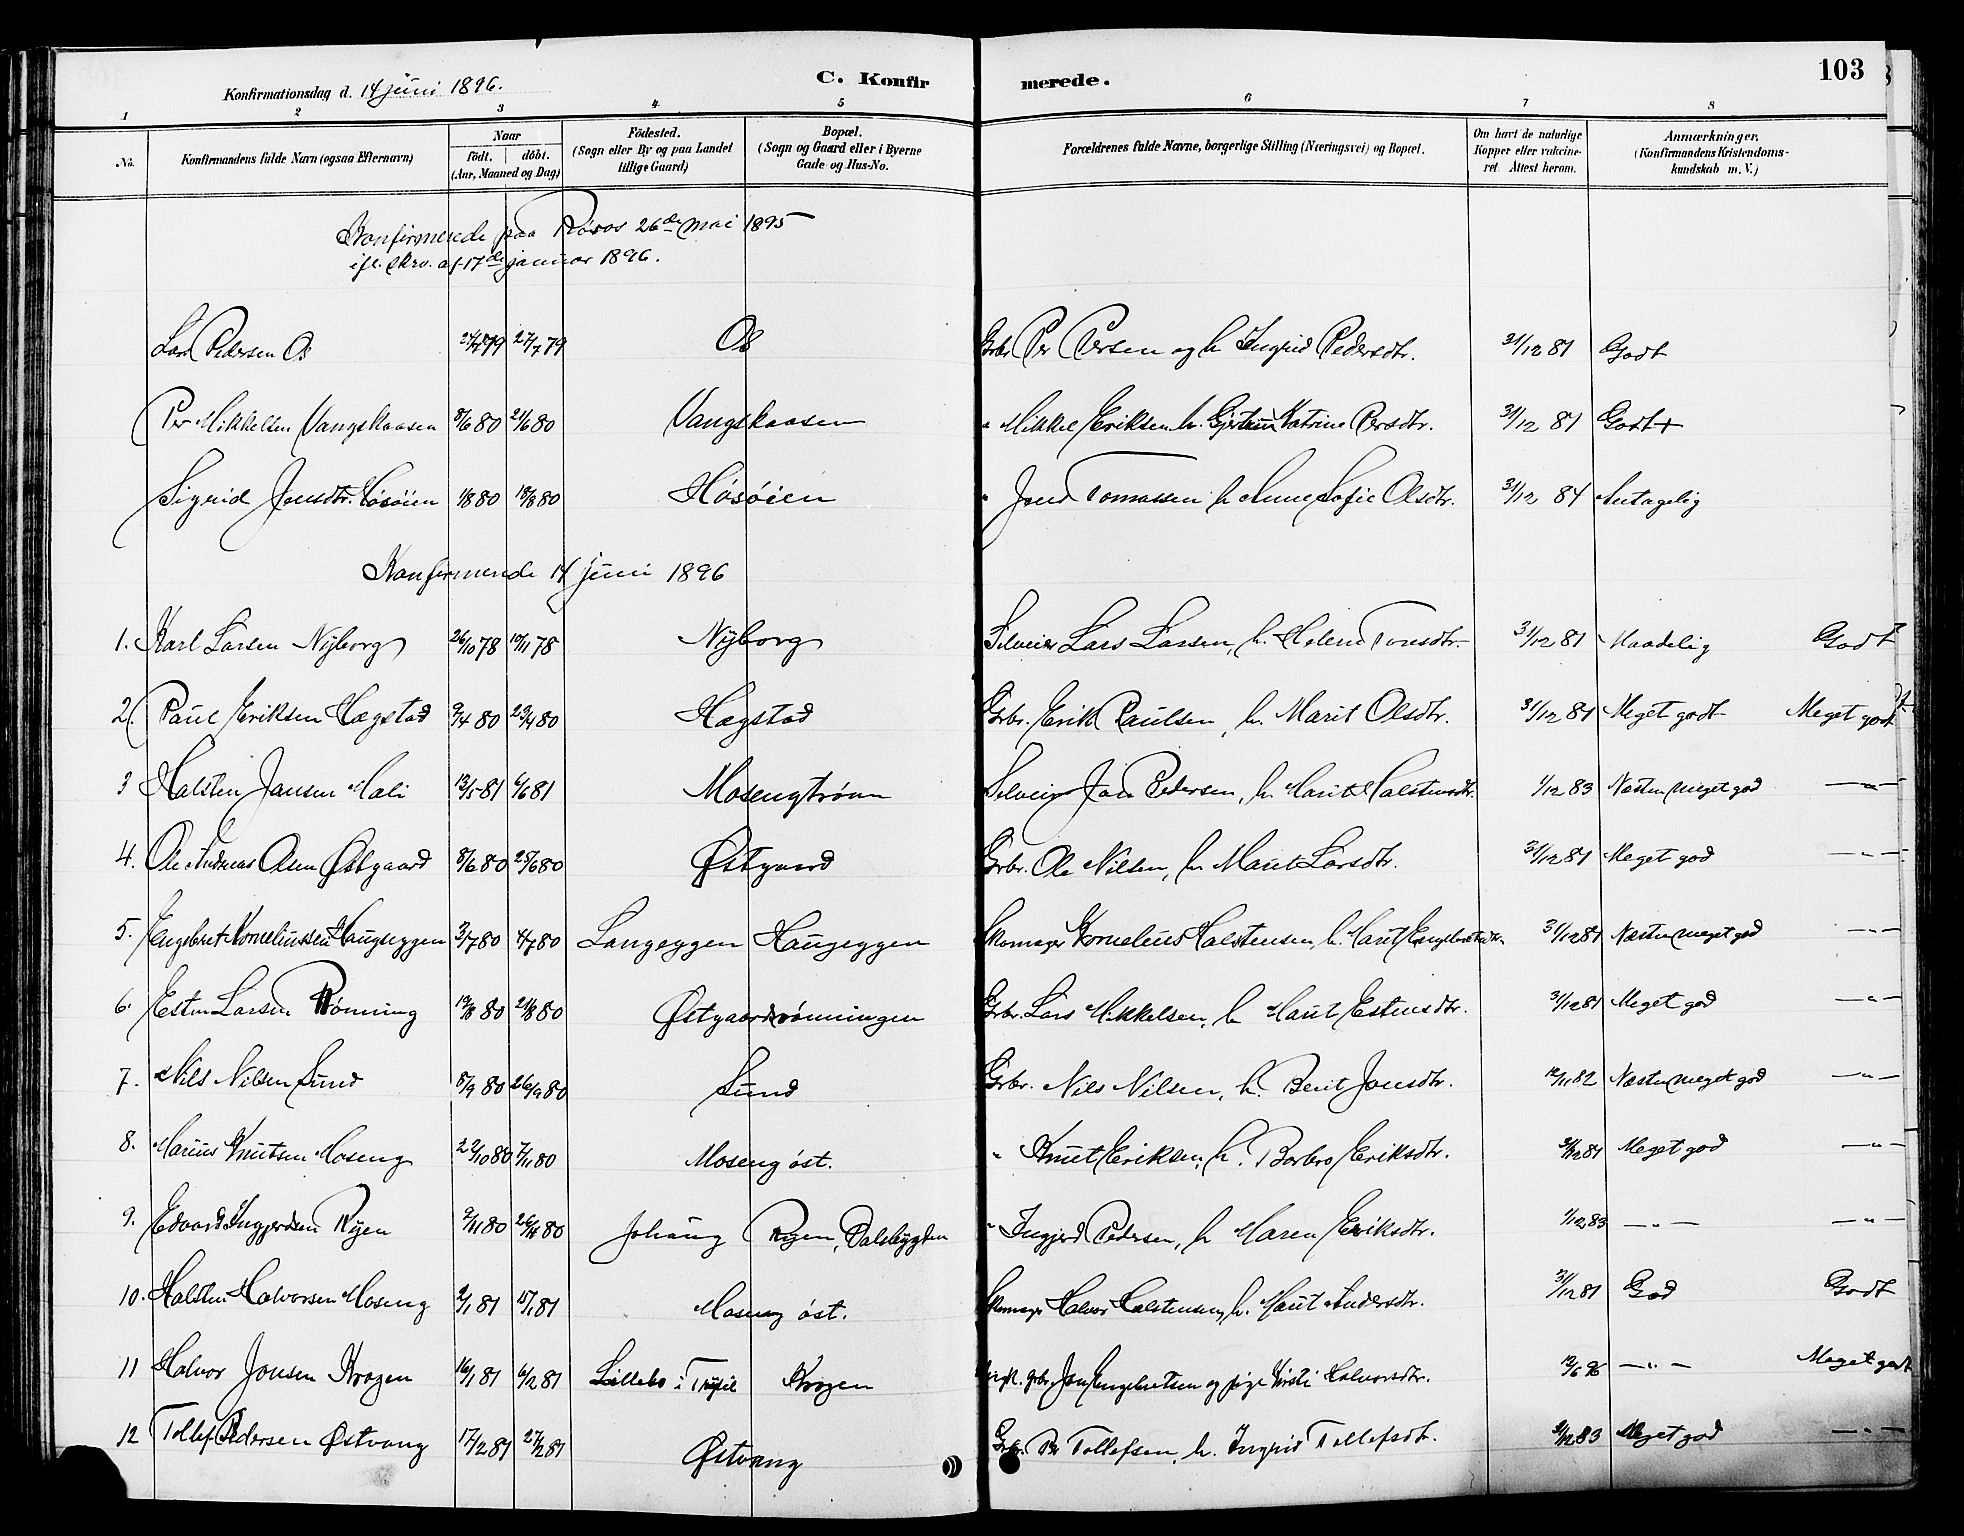 C. Konfirmerede.
103
Konfirmationsdag d. 14 juni 1896.
1 2 3 4 5 6 7 8
No. Konfirmandens fulde Navn (ogsaa Efternavn) Naar födt. döbt. (Aar, Maaned og Dag) Födested. (Sogn eller By og paa Landet tillige Gaard) Bopæl. (Sogn og Gaard eller i Byerne Gade og Hus-No. Forældrenes fulde Navne, borgerlige Stilling (Næringsvei) og Bopæl. Om havt de naturlige Kopper eller vaccineret. Attest herom. Anmærkninger. (Konfirmandens Kristendomskundskab m. V.)
Konfirmerede paa Röros 26de mai 1895
ifl. skrv. af 17de januar 1896.
Lars Pedersen Os 27/7 79 Os Grbr. Per Persen og h. Ingrid Pedersdtr. 31/12 81 Godt
Per Mikkelsen Vangskaasen 8/6 80 21/6 80 Vangskaasen " Mikkel Eriksen h. Katrine Persdtr. 31/12 81 Godt+
Sigrid Jonsdtr. Høsøien 1/8 80 18/8 80 Høsøien " Jens Tomassen h. Anne Sofie Olsdtr. 31/12 84 Antagelig
Konfirmerede 14 juni 1896
1. Karl Larsen Nyborg 26/10 78 10/11 78 Nyborg Selveier Lars Larsen, h. Helene Tonsdtr. 31/12 81 Maadelig Godt
2 Paul Eriksen Hægstad 9/4 80 23/4 80 Hægstad Grbr. Erik Paulsen, h. Marit Olsdtr. 31/12 81 Meget godt Meget godt
3 Halsten Jansen Moli 13/5 81 6/6 81 Mosengtrøen Selveier Jan Pedersen, h. Marit Halstensdtr. 1/12 83 Næsten meget god — " —
4. Ole Andreas Olsen Østgaard 8/6 80 25/6 80 Østgaard Grbr. Ole Nilsen, h. Marit Larsdtr. 31/12 81 Meget god — " —
5. Engebret Korneliussen Haugeggen 3/7 80 4/7 80 Langeggen Haugeggen Skomager Kornelius Halstensen, h. Marit Engebretsdtr. 31/12 81 Næsten meget god — " —
6. Esten Larsen Rönning 19/8 80 21/8 80 Østgaardsrönningen Grbr. Lars Mikkelsen, h Marit Estensdtr. 31/12 81 Meget god — " —
7. Nils Nilsen Sund 8/9 80 26/9 80 Sund Grbr. Nils Nilsen, h. Berit Jonsdtr. 12/11 82 Næsten meget god — " —
8. Marius Knutsen Moseng 22/10 80 7/11 80 Moseng øst. " Knut Eriksen, h. Barbro Eriksdtr. 31/12 81 Meget god — " —
9. Edvard Ingjerdsen Ryen 9/11 80 26/11 80 Johaug Ryen, Dalsbygden " Ingjerd Pedersen, h Maren Eriksdtr. 1/12 83 — " — — " —
10. Halsten Halvorsen Moseng 2/1 81 15/1 81 Moseng öst. Skomager Halvor Halstensen, h. Marit Andersdtr. 31/12 81 God Godt
11 Halvor Jonsen Krogen 16/1 81 6/2 81 Lillebo i Trysil Krogen Grbr. Jon Engebretsen og pige Kirsti Halvorsdtr. 12/6 96 — " — Meget godt
12 Tollef Pedersen Østvang 17/2 81 27/2 81 Østvang Grbr. Per Tollefsen, h. Ingrid Tollefsdt. 3/12 83 Meget god — " —